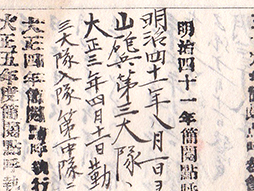 明治四十一年簡閲點呼
明治四十一年八月一日
山砲兵第三大隊
大正三年四月十一日勤
三大隊入隊第一中隊
大正四年簡閲點呼執行
大正五年度簡閲點呼執